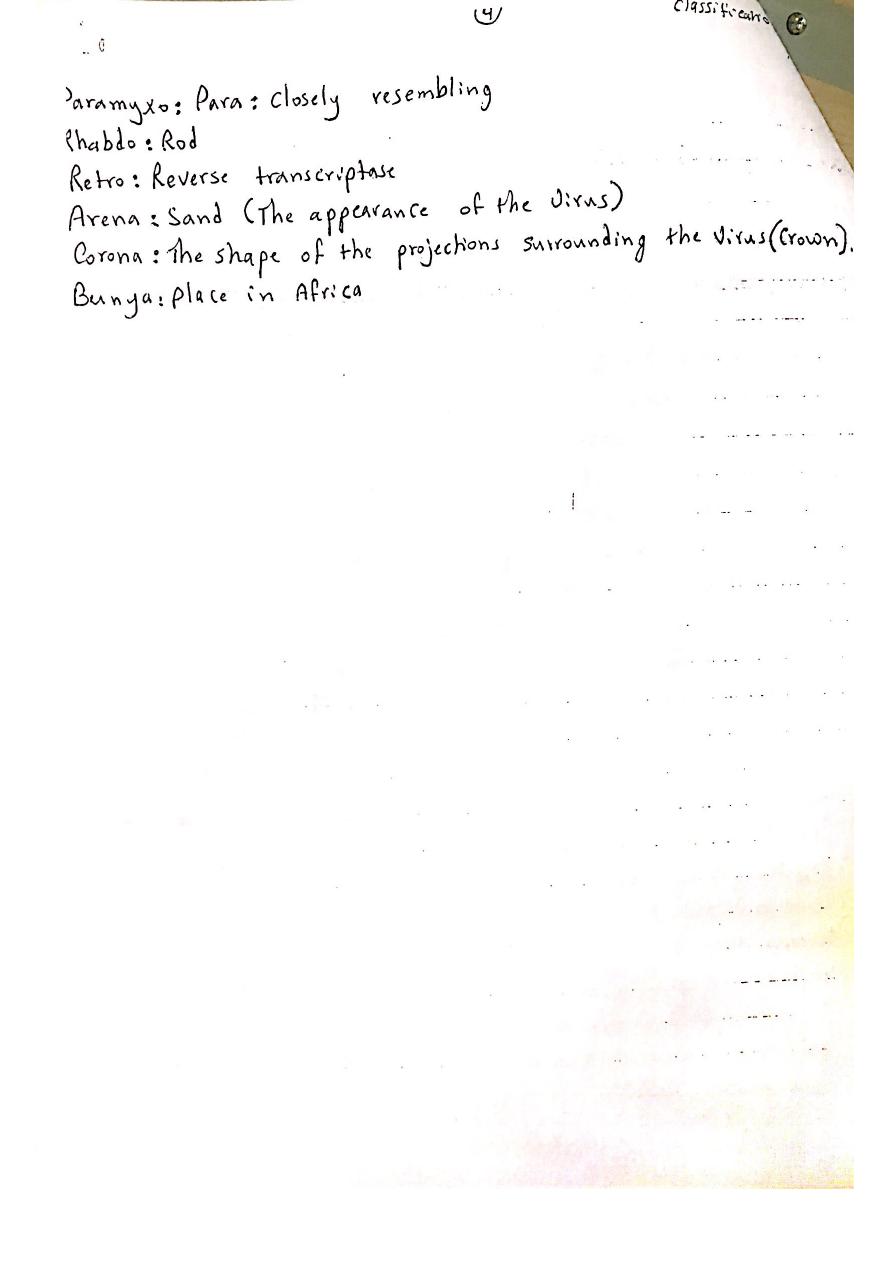 4
Classificatio
Paramyxo: Para: Closely resembling
Rhabdo: Rod
Retro: Reverse transcriptase
Arena: Sand (The appearance of the virus)
Corona: The shape of the projections surrounding the virus (Crown).
Bunya: place in Africa